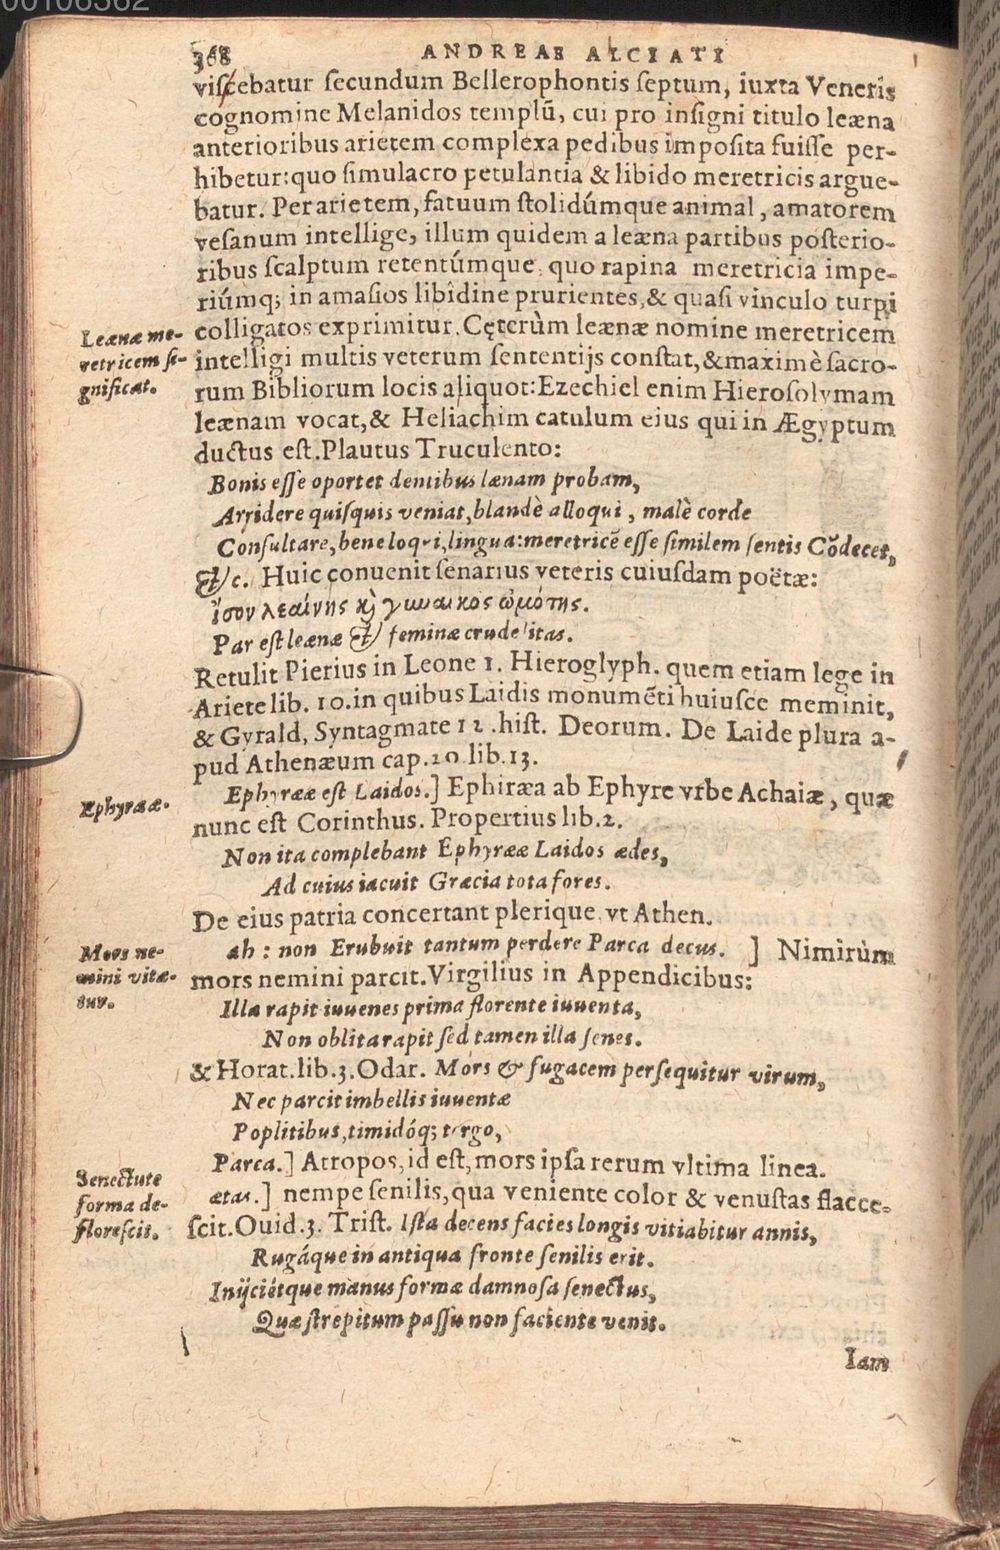 00106362
368 ANDREAS ALCIATI
viſcebatur ſecundum Bellerophontis ſeptum, iuxta Veneris
cognomine Melanidos templũ, cui pro inſigni titulo leæna
anterioribus arietem complexa pedibus impoſita fuiſſe per-
hibetur: quo ſimulacro petulantia & libido meretricis argue-
batur. Per arietem, fatuum ſtolidúmque animal, amatorem
veſanum intellige, illum quidem a leæna partibus poſterio-
ribus ſcalptum retentúmque, quo rapina meretricia impe-
riúmq; in amaſios libidine prurientes, & quaſi vinculo turpi
colligatos exprimitur. Cęterùm leænæ nomine meretricem
intelligi multis veterum ſententijs conſtat, & maximè ſacro-
rum Bibliorum locis aliquot: Ezechiel enim Hieroſolymam
leænam vocat, & Heliachim catulum eius qui in Ægyptum
ductus eſt. Plautus Truculento:
Leænæ me-
retricem ſi-
gnificat.
Bonis eſſe oportet dentibus lænam probam,
Arridere quiſquis veniat, blandè alloqui, malè corde
Conſultare, bene loqui, lingua: meretricẽ eſſe ſimilem ſentis Cõdecet,
&c. Huic conuenit ſenarius veteris cuiuſdam poëtæ:
ἴσον λεαίνης κ̀ γυναικος ὠμότης.
Par eſt leænæ & feminæ crudelitas.
Retulit Pierius in Leone 1. Hieroglyph. quem etiam lege in
Ariete lib. 10. in quibus Laidis monumẽti huiuſce meminit,
& Gyrald, Syntagmate 12. hiſt. Deorum. De Laide plura a-
pud Athenæum cap. 20 lib. 13.
Ephyrææ.
Ephyrææ eſt Laidos.] Ephiræa ab Ephyre vrbe Achaiæ, quæ
nunc eſt Corinthus. Propertius lib. 2.
Non ita complebant Ephyrææ Laidos ædes,
Ad cuius iacuit Græcia tota fores.
De eius patria concertant plerique, vt Athen.
Mors ne-
mini vitæ-
tur.
ah: non Erubuit tantum perdere Parca decus. ] Nimirùm
mors nemini parcit. Virgilius in Appendicibus:
Illa rapit iuuenes prima florente iuuenta,
Non oblita rapit ſed tamen illa ſenes.
& Horat. lib. 3. Odar. Mors & fugacem perſequitur virum,
Nec parcit imbellis iuuentæ
Poplitibus, timidóq; tergo,
Parca.] Atropos, id eſt, mors ipſa rerum vltima linea.
Senectute
forma de-
floreſcit.
ætas.] nempe ſenilis, qua veniente color & venuſtas flacce-
ſcit. Ouid. 3. Triſt. Iſta decens facies longis vitiabitur annis,
Rugáque in antiqua fronte ſenilis erit.
Inijciétque manus formæ damnoſa ſenectus,
Quæ ſtrepitum paſſu non faciente venit.
Iam